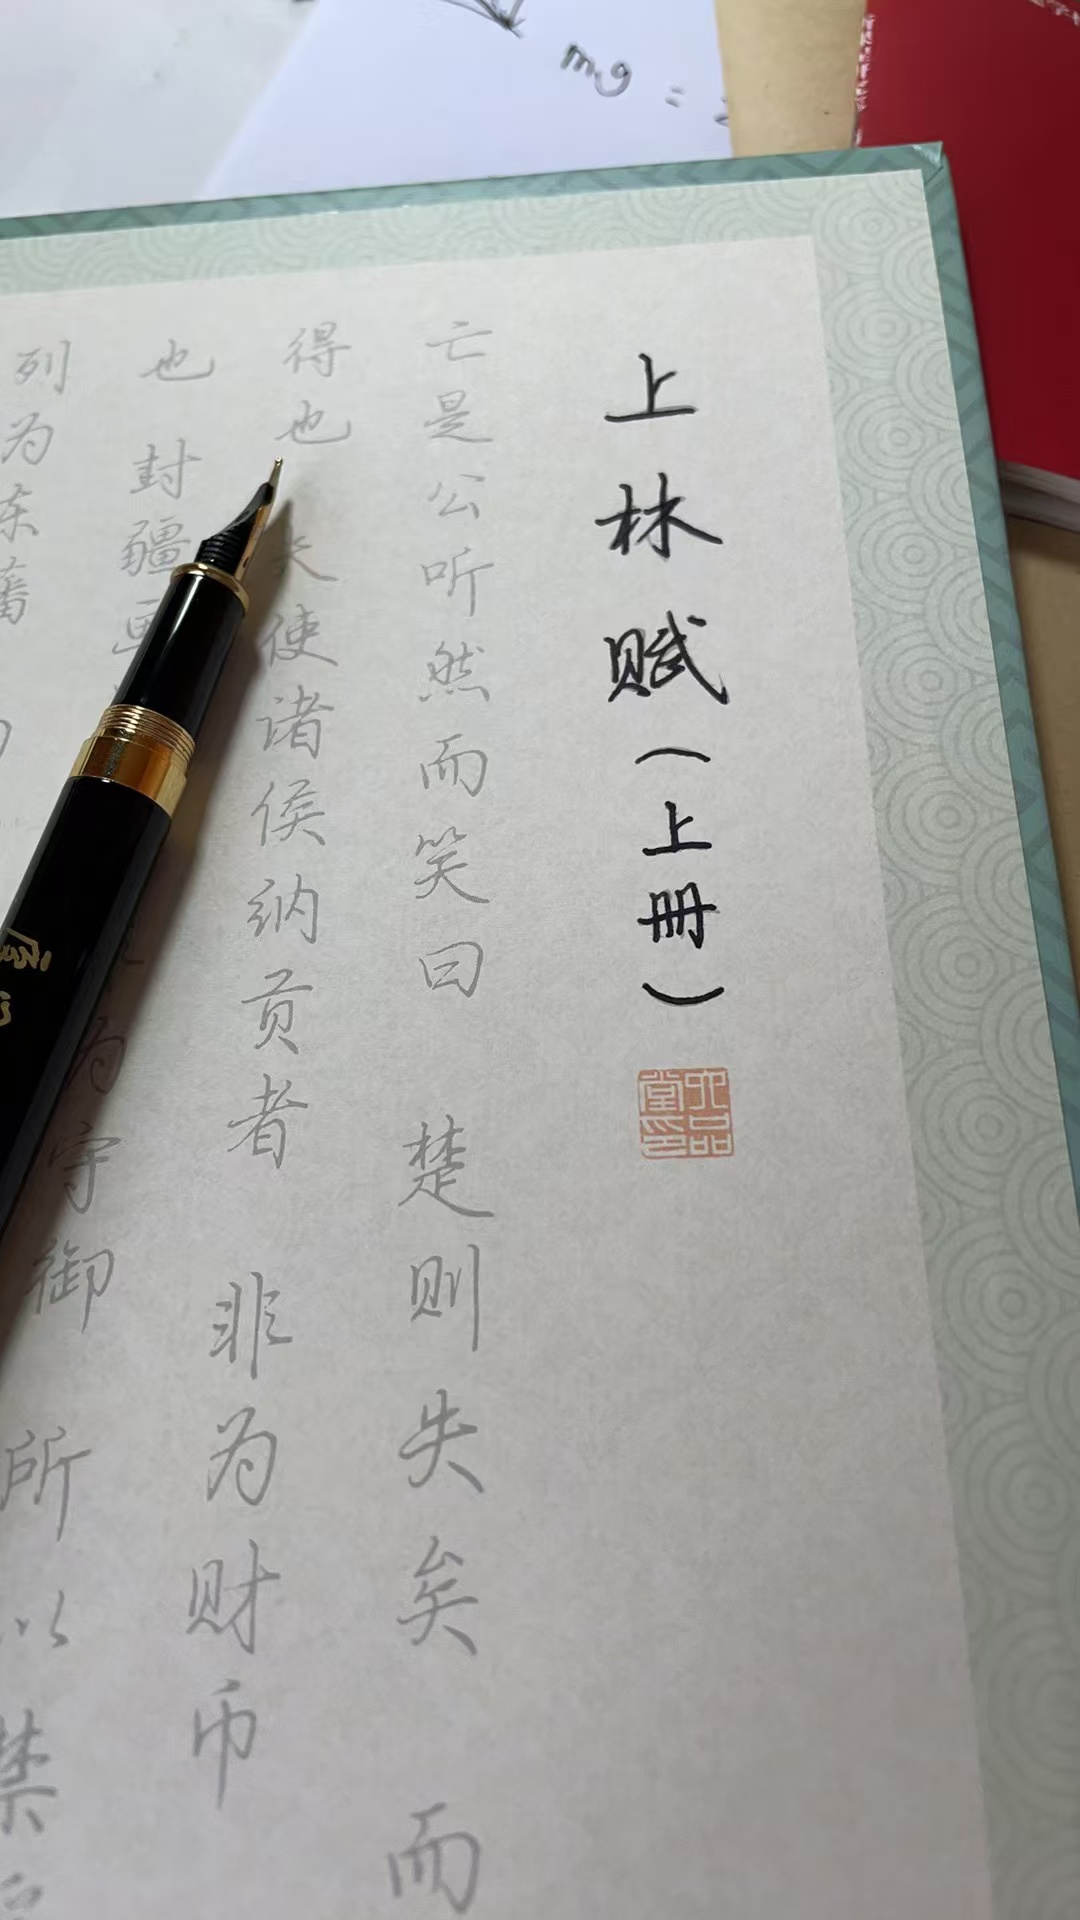 mg =
上林赋（上册）
六品堂印
亡是公听然而笑曰 楚则失矣 而
得也 夫使诸侯纳贡者 非为财币
也 封疆画 为守御 所以禁
列为东藩